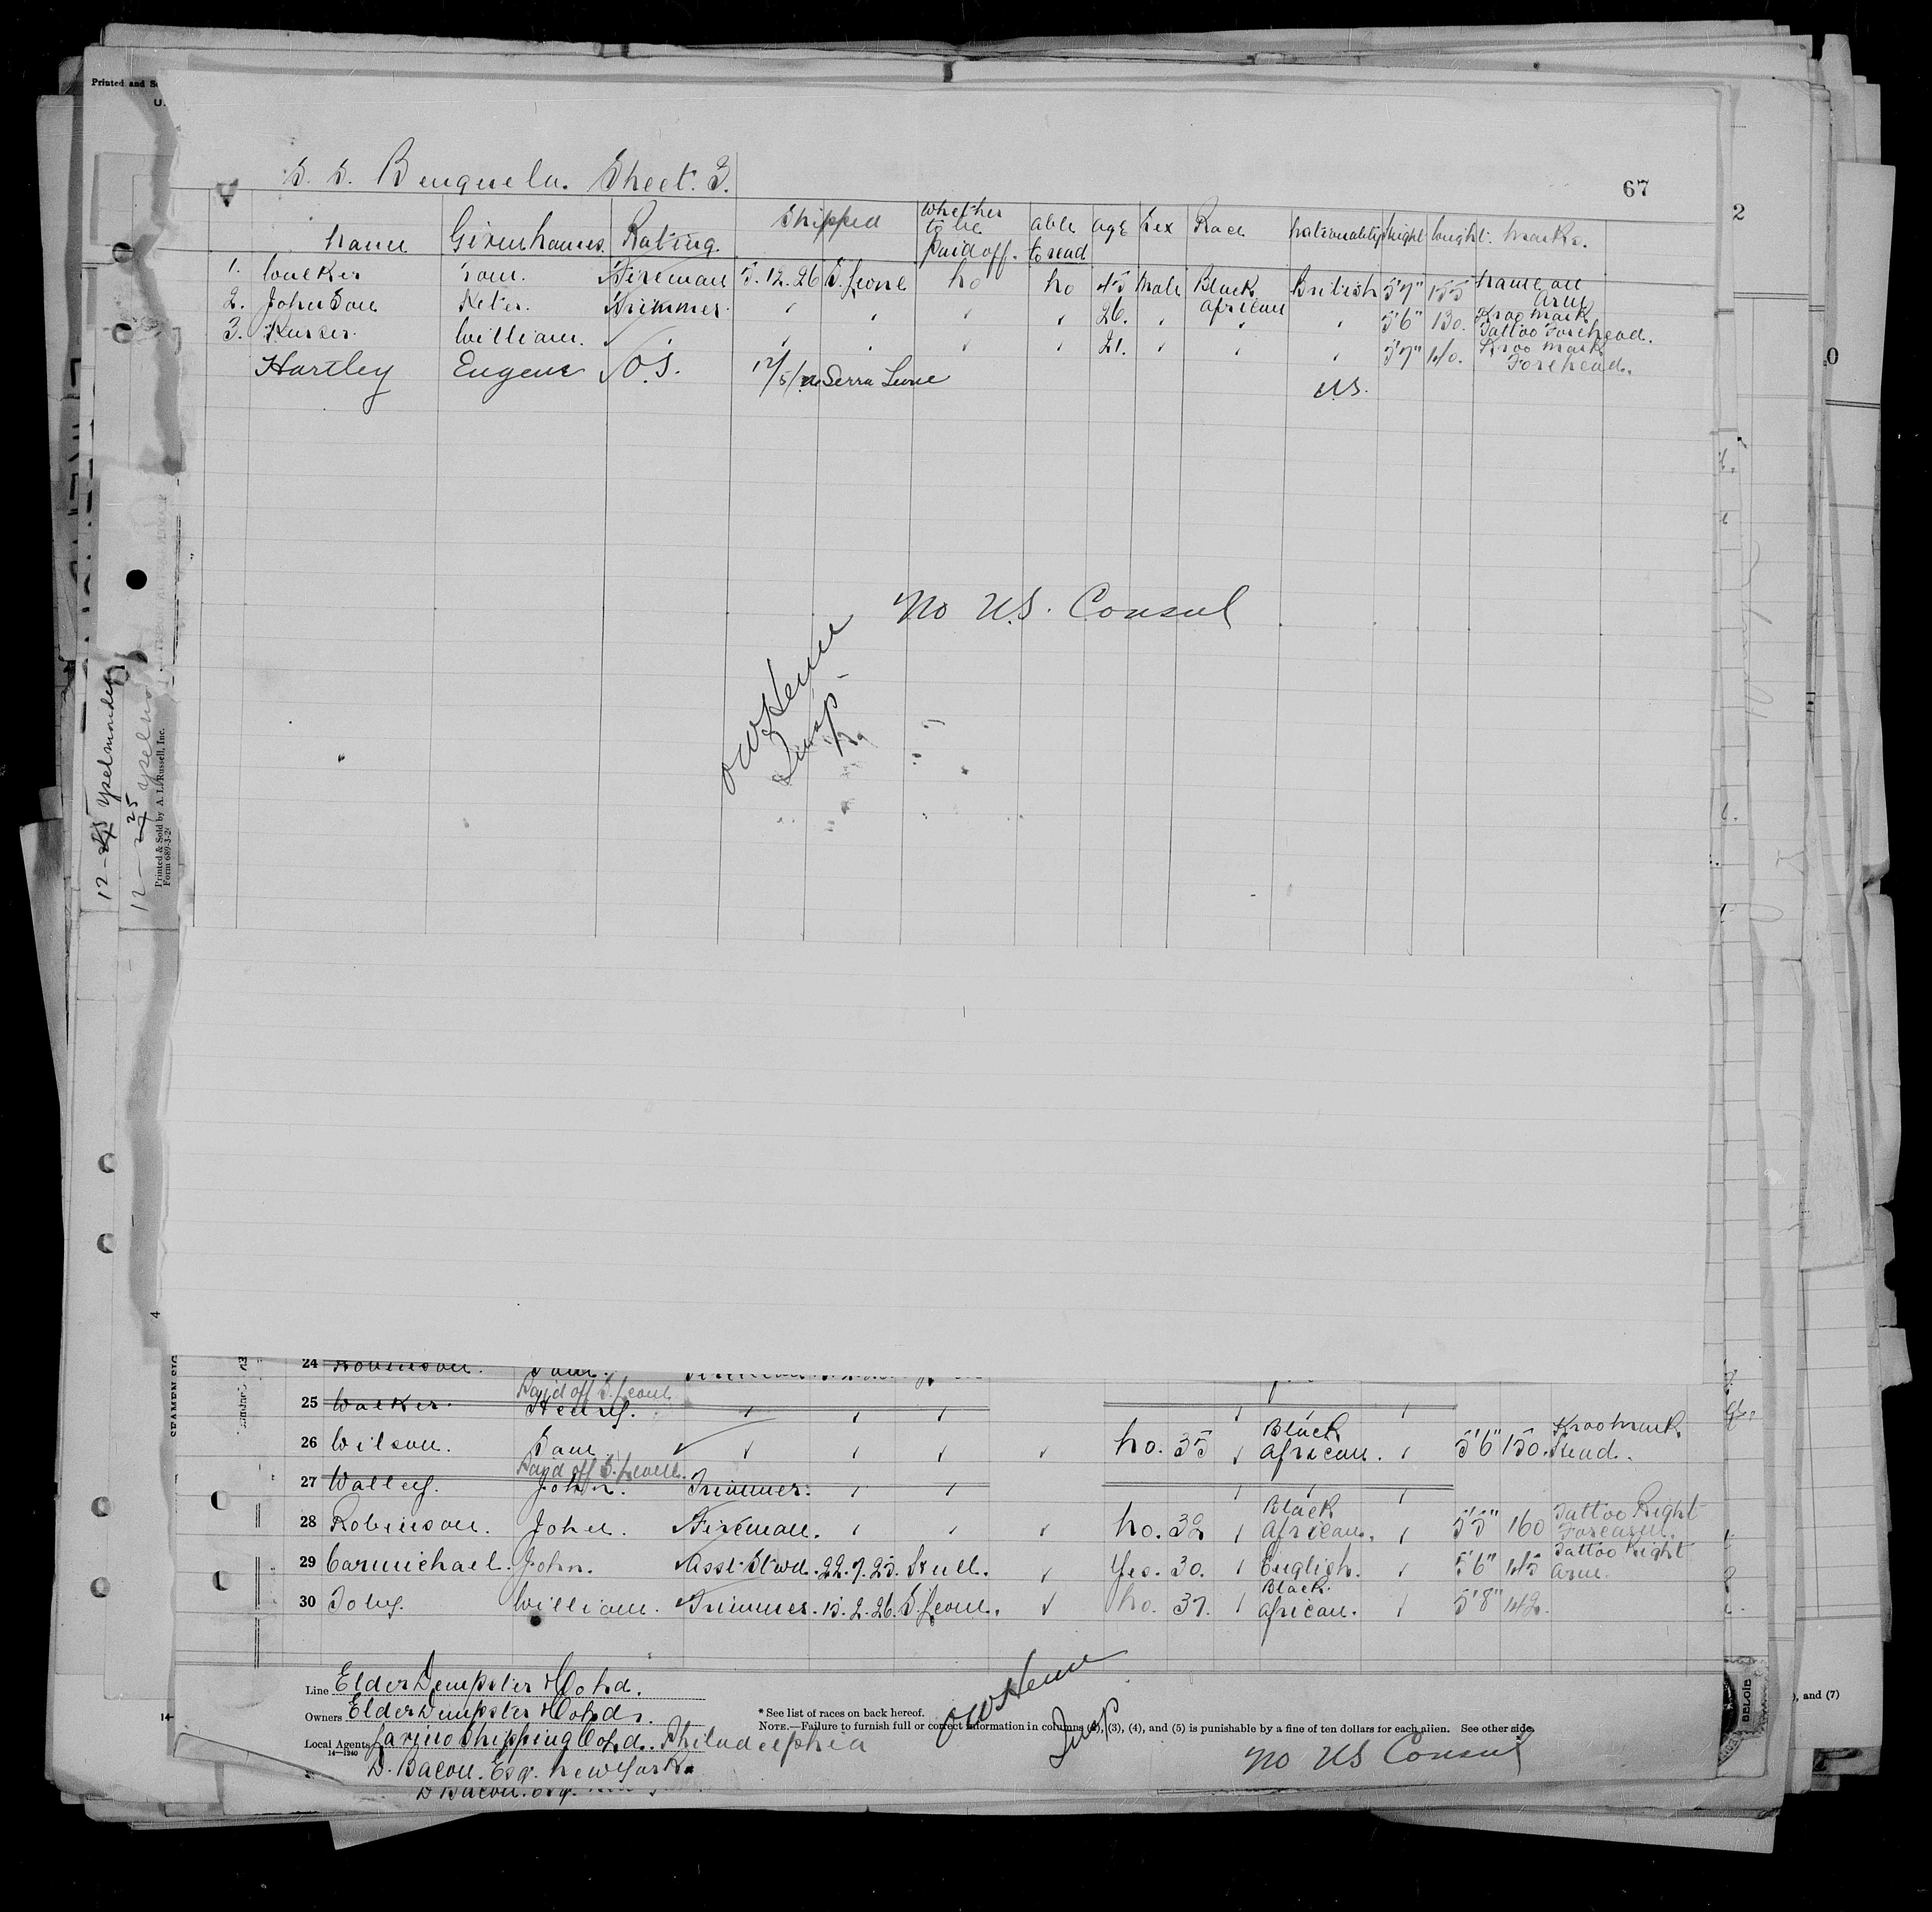 Printed and
67
S. S. Benguela. Sheet. 3.
2
Name Given Names. Rating. Shipped Whether to be paid off. able to read age Sex Race Nationality Hight Weight. Marks.
1. Walker Tom. Fireman 5.12.26 S. Leone No No 45 Male Black African British 5'7" 155 Name on Arm
2. Johnson Peter. Trimmer. 26. 5'6" 130. Kroo Mark Tattoo Forehead.
3. William. 21. 5'7" 140. Kroo Mark Forehead.
Hartley Eugene O.S. 12/5/26 Serra Leone U.S.
0
No U.S. Consul
Insp
12 - Yselmonde
12 - 25
Printed & Sold by A. L. Russell, Inc.
Form 689-3-2
4
24 Robinson.
25 Walker. Paid off S. Leone Henry.
26 Wilson. Sam No. 35 Black African. 5'6" 150. Kroo Mark Head.
27 Walley. Paid off S. Leone John. Trimmer.
28 Robinson. John. Fireman. No. 32 Black African. 5'5" 160 Tattoo Right Forearm.
29 Carmichael. John. Asst Stwd. 22.7.25. Hull. Yes. 30. English. 5'6" 145 Tattoo Right Arm.
30 Toby. William. Trimmer. 15.2.26. S. Leone. No. 37. Black African. 5'8" 142.
Line Elder Dempster & Co Ltd.
Owners Elder Dempster & Co Ltd.
Local Agents Larino Shipping Co Ltd. Philadelphia
14—1240
D. Bacon. Esq. New York.
D Bacon. Esq.
* See list of races on back hereof.
NOTE.—Failure to furnish full or correct information in columns (2), (3), (4), and (5) is punishable by a fine of ten dollars for each alien. See other side.
, and (7)
Insp
No US Consul